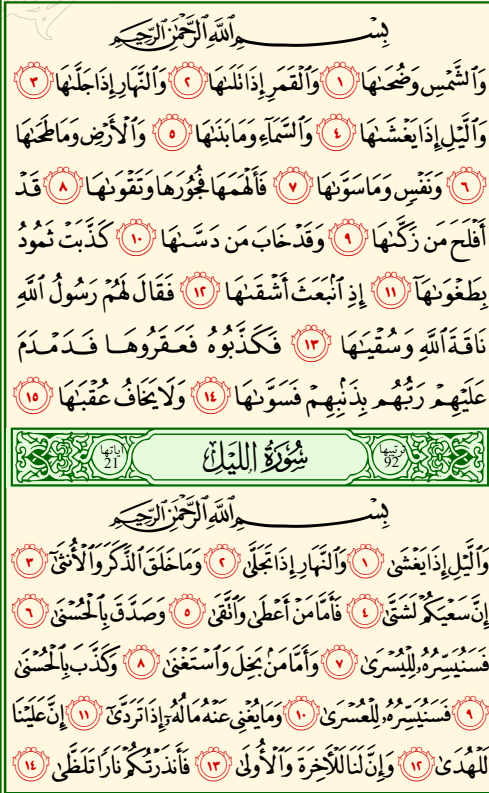 بِسْمِ ٱللَّهِ ٱلرَّحْمَٰنِ ٱلرَّحِيمِ
وَٱلشَّمْسِ وَضُحَىٰهَا ١ وَٱلْقَمَرِ إِذَا تَلَىٰهَا ٢ وَٱلنَّهَارِ إِذَا جَلَّىٰهَا ٣
وَٱلَّيْلِ إِذَا يَغْشَىٰهَا ٤ وَٱلسَّمَآءِ وَمَا بَنَىٰهَا ٥ وَٱلْأَرْضِ وَمَا طَحَىٰهَا
٦ وَنَفْسٍ وَمَا سَوَّىٰهَا ٧ فَأَلْهَمَهَا فُجُورَهَا وَتَقْوَىٰهَا ٨ قَدْ
أَفْلَحَ مَن زَكَّىٰهَا ٩ وَقَدْ خَابَ مَن دَسَّىٰهَا ١٠ كَذَّبَتْ ثَمُودُ
بِطَغْوَىٰهَآ ١١ إِذِ ٱنۢبَعَثَ أَشْقَىٰهَا ١٢ فَقَالَ لَهُمْ رَسُولُ ٱللَّهِ
نَاقَةَ ٱللَّهِ وَسُقْيَٰهَا ١٣ فَكَذَّبُوهُ فَعَقَرُوهَا فَدَمْدَمَ
عَلَيْهِمْ رَبُّهُم بِذَنۢبِهِمْ فَسَوَّىٰهَا ١٤ وَلَا يَخَافُ عُقْبَٰهَا ١٥
ترتيبها 92 سُورَةُ اللَّيْلِ آياتها 21
بِسْمِ ٱللَّهِ ٱلرَّحْمَٰنِ ٱلرَّحِيمِ
وَٱلَّيْلِ إِذَا يَغْشَىٰ ١ وَٱلنَّهَارِ إِذَا تَجَلَّىٰ ٢ وَمَا خَلَقَ ٱلذَّكَرَ وَٱلْأُنثَىٰٓ ٣
إِنَّ سَعْيَكُمْ لَشَتَّىٰ ٤ فَأَمَّا مَنْ أَعْطَىٰ وَٱتَّقَىٰ ٥ وَصَدَّقَ بِٱلْحُسْنَىٰ ٦
فَسَنُيَسِّرُهُۥ لِلْيُسْرَىٰ ٧ وَأَمَّا مَنۢ بَخِلَ وَٱسْتَغْنَىٰ ٨ وَكَذَّبَ بِٱلْحُسْنَىٰ
٩ فَسَنُيَسِّرُهُۥ لِلْعُسْرَىٰ ١٠ وَمَا يُغْنِى عَنْهُ مَالُهُۥٓ إِذَا تَرَدَّىٰٓ ١١ إِنَّ عَلَيْنَا
لَلْهُدَىٰ ١٢ وَإِنَّ لَنَا لَلْءَاخِرَةَ وَٱلْأُولَىٰ ١٣ فَأَنذَرْتُكُمْ نَارًا تَلَظَّىٰ ١٤